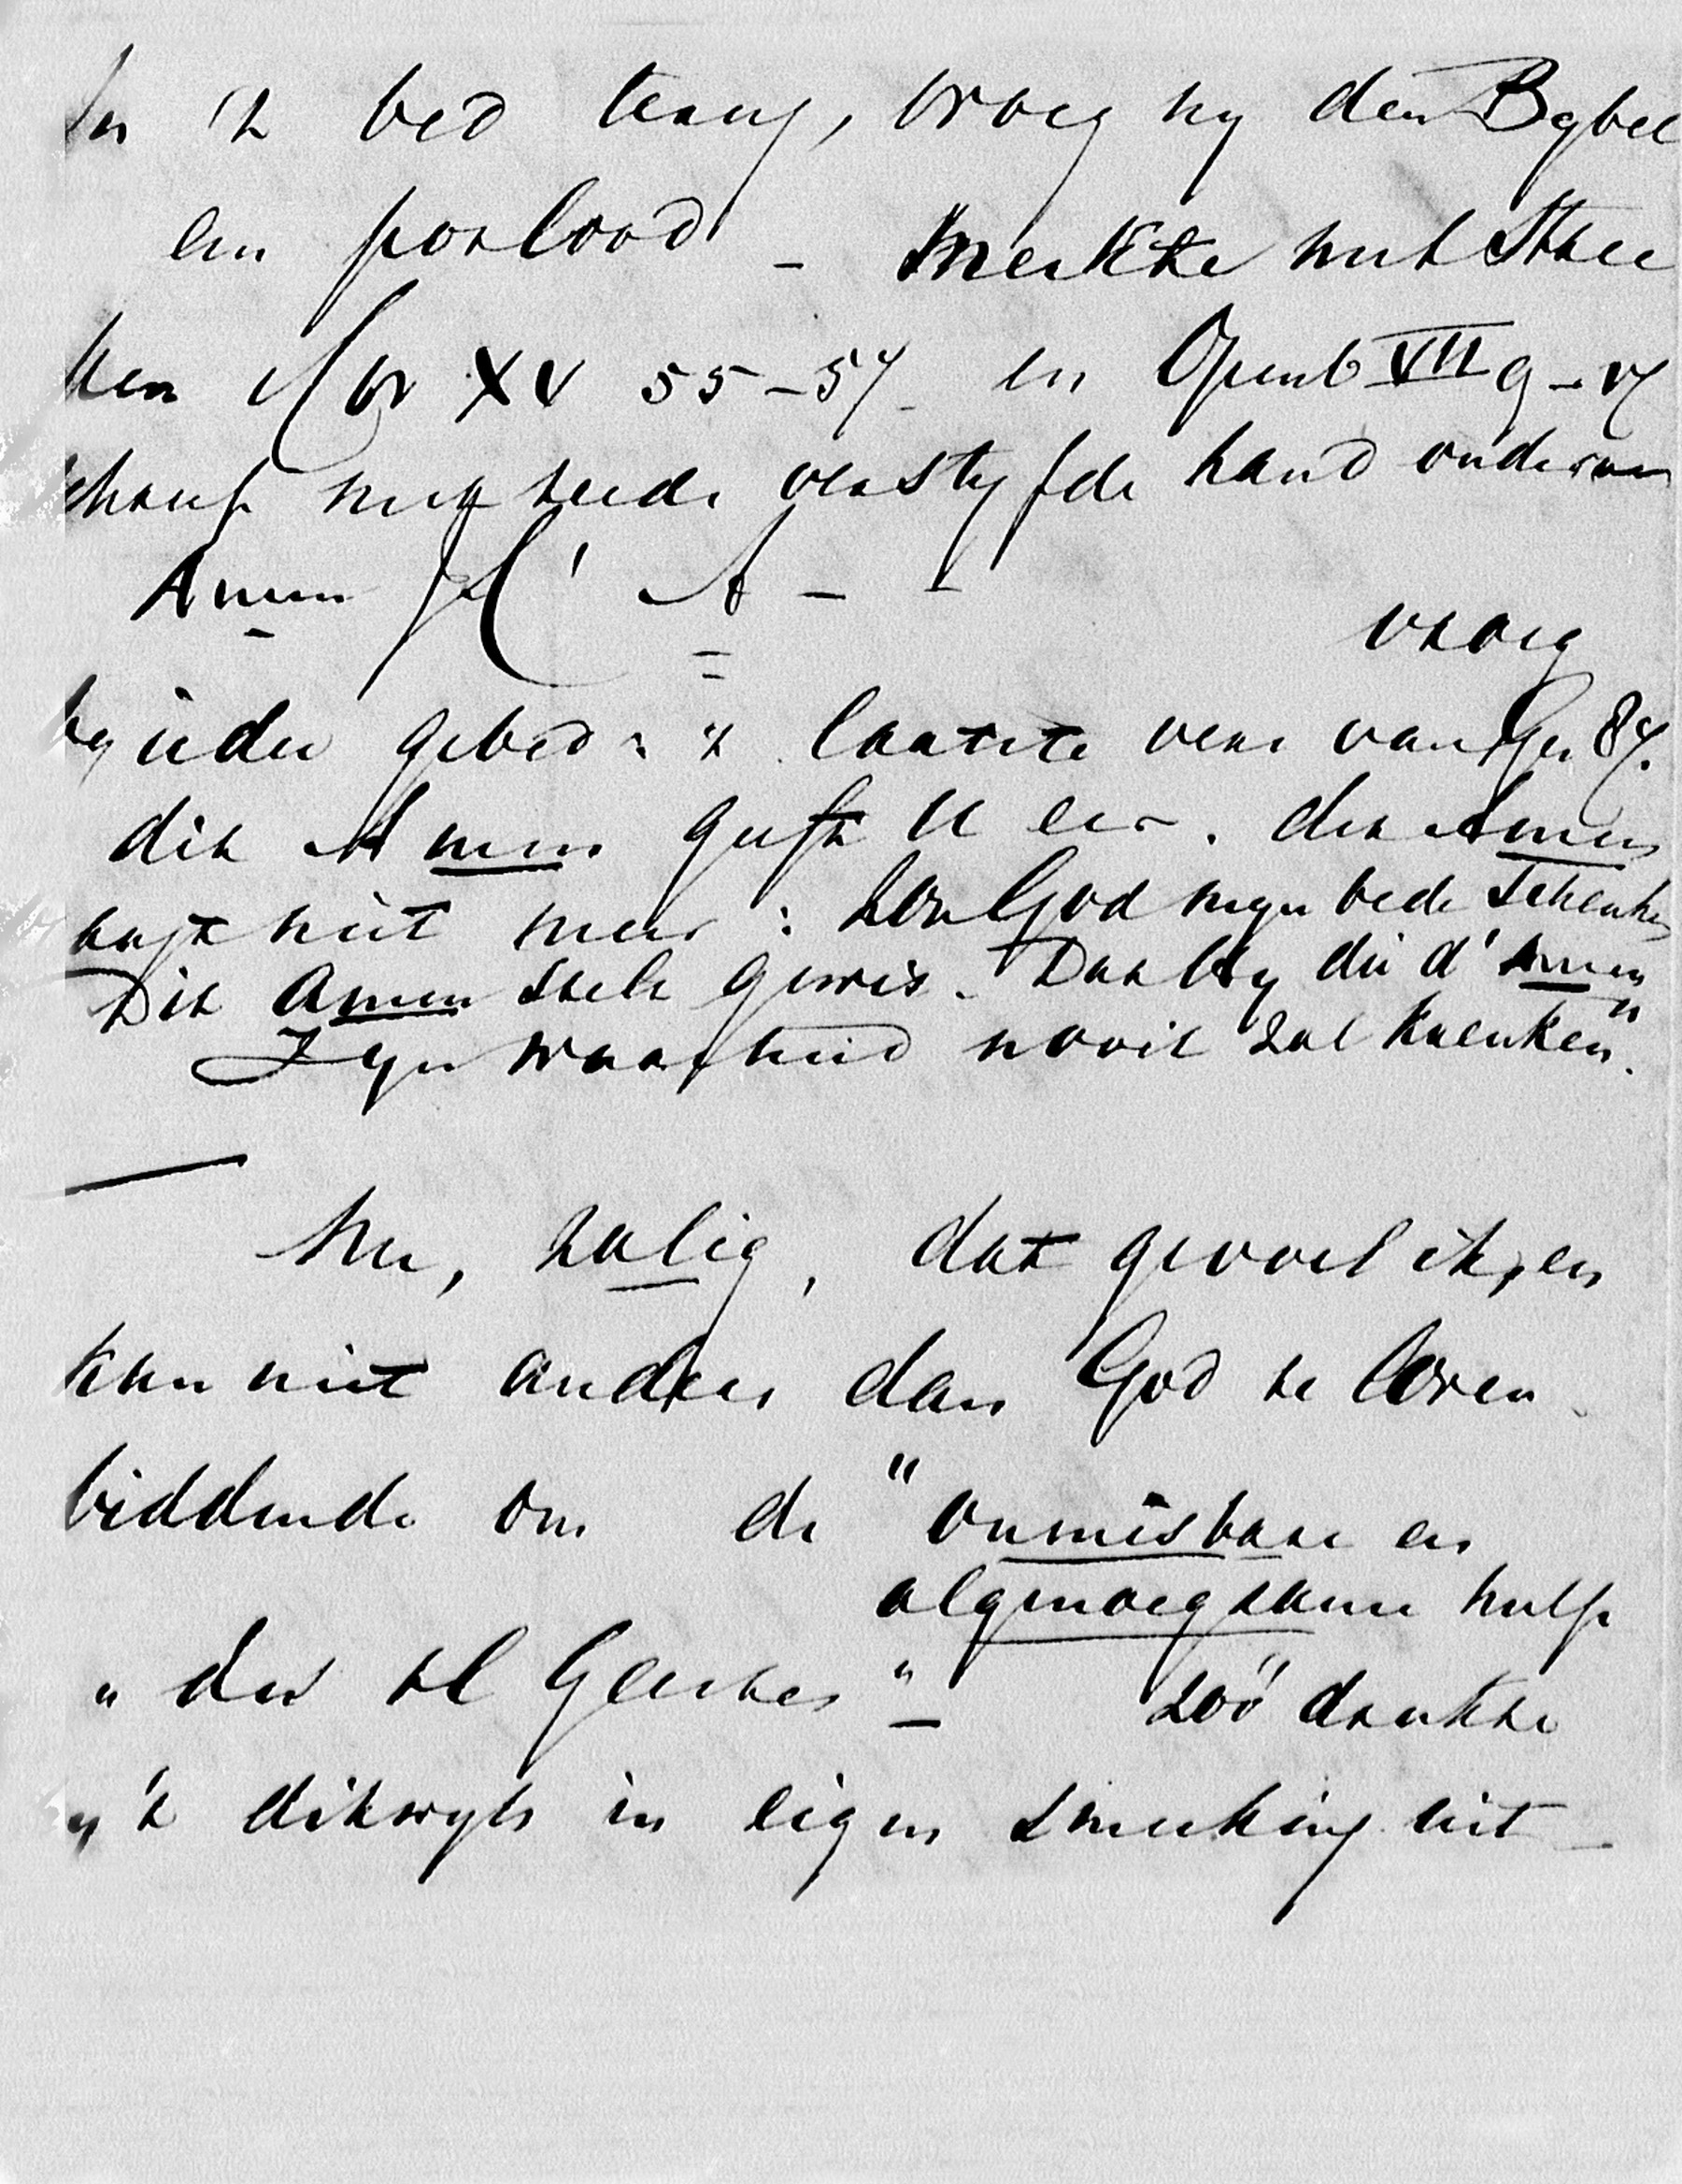 In 't bed terug, vroeg hy den Bybel
een potlood - merkte met Stree
ken I Cor XV 55-57 en Openb VII 9-17
schreef met reeds verstyfde hand onder aan
Amen
vroeg
by ieder gebed: 't laatste vers van Gez 87.
dit Amen geeft U eer. dit Amen
rust niet meer: zou God myn bede schenken
Dit Amen stelt gewis. Dat Hy die d' Amen
is
Zyn waarheid nooit zal krenken".
Nu, zalig, dat gevoel ik, en
kan niet anders dan God te loven
biddende om de "onmisbare en
algenoegzame hulp
"des Hl Geestes" - zóó drukte
hy 't dikwyls in eigen smeeking uit -